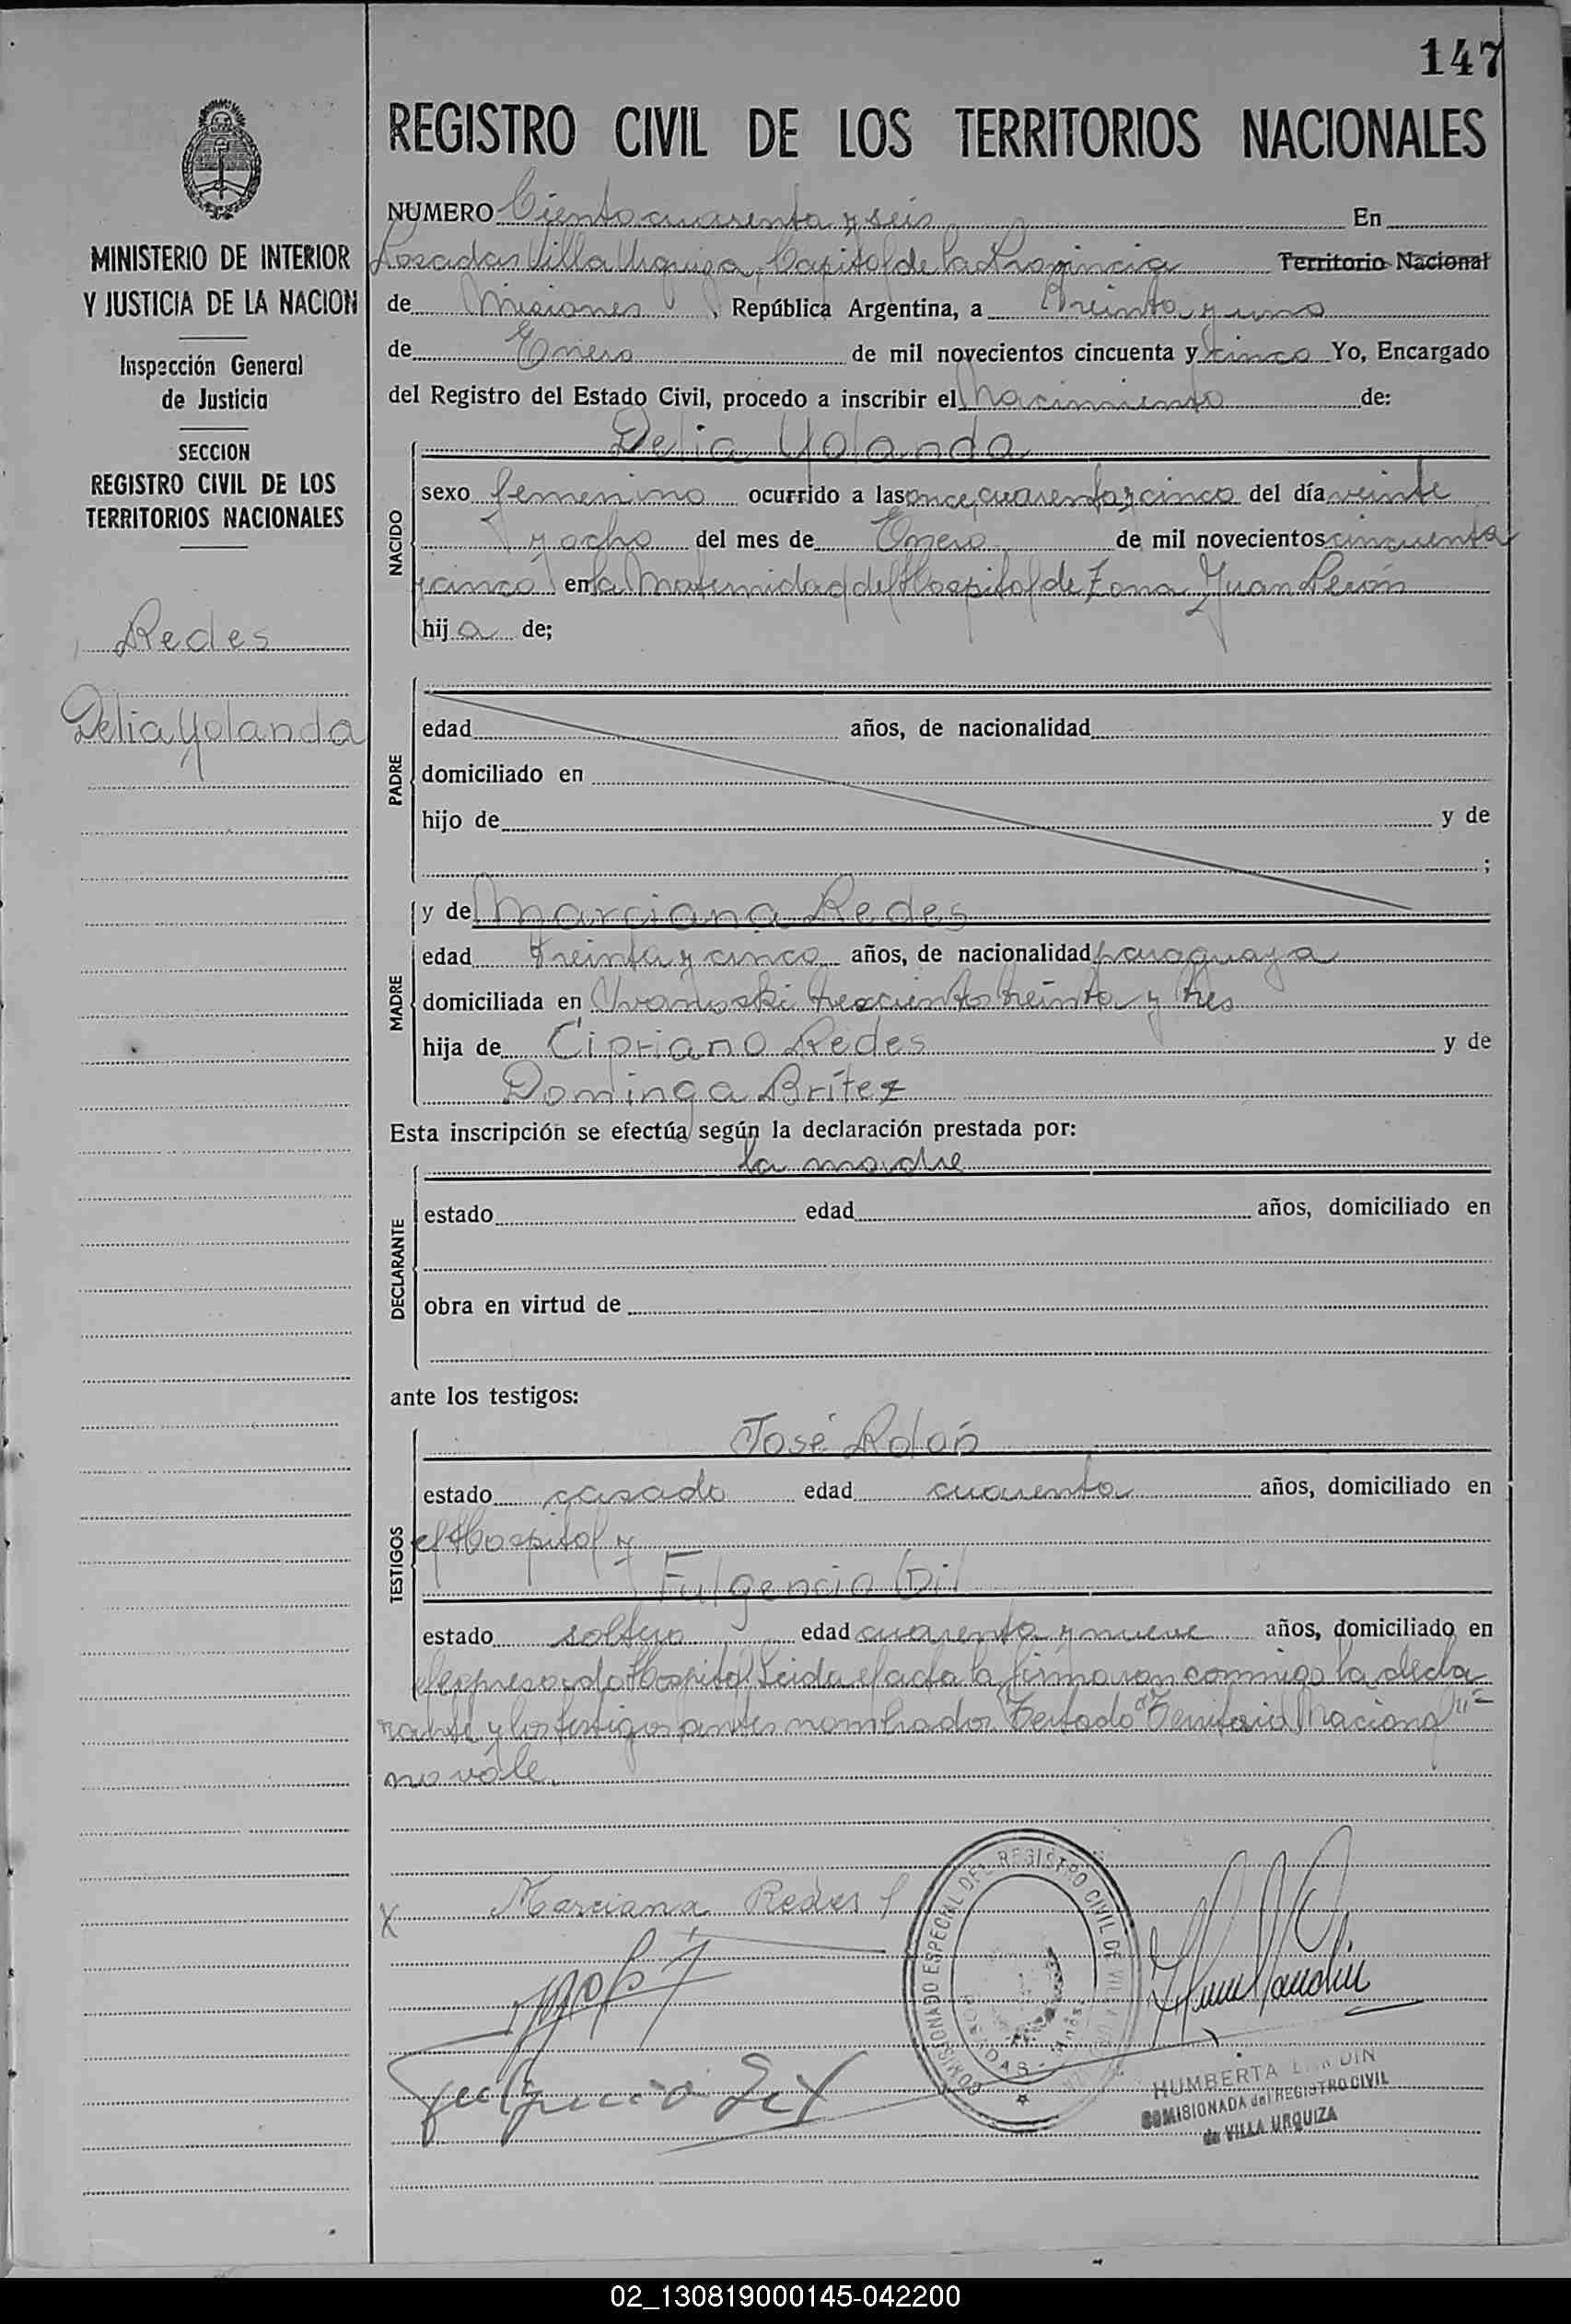 147
REGISTRO CIVIL DE LOS TERRITORIOS NACIONALES
MINISTERIO DE INTERIOR
Y JUSTICIA DE LA NACION
Inspección General
de Justicia
SECCION
REGISTRO CIVIL DE LOS
TERRITORIOS NACIONALES
Redes
Delia Yolanda
NUMERO Ciento cuarenta y seis En
Posadas Villa Urquiza, Capital de la Provincia Territorio Nacional
de Misiones, República Argentina, a treinta y uno
de Enero de mil novecientos cincuenta y cinco Yo, Encargado
del Registro del Estado Civil, procedo a inscribir el Nacimiento de:
Delia Yolanda
NACIDO
sexo femenino ocurrido a las once, cuarenta y cinco del día veinte
y ocho del mes de Enero de mil novecientos cincuenta
y cinco en la Maternidad del Hospital de Zona Juan Perón
hija de;
PADRE
edad años, de nacionalidad
domiciliado en
hijo de y de
;
y de Marciana Redes
MADRE
edad treinta y cinco años, de nacionalidad paraguaya
domiciliada en trescientos treinta y tres
hija de Cipriano Redes y de
Dominga Britez
Esta inscripción se efectúa según la declaración prestada por:
la madre
DECLARANTE
estado edad años, domiciliado en
obra en virtud de
ante los testigos:
José Rolón
TESTIGOS
estado casado edad cuarenta años, domiciliado en
el Hospital y
Fulgencio Gil
estado soltero edad cuarenta y nueve años, domiciliado en
el expresado Hospital. Leida el acta la firmaron conmigo la decla
rante y los testigos antes nombrados Testado "Territorio Nacional" =
no vale.
X Marciana Redes
COMISIONADO ESPECIAL DEL REGISTRO CIVIL DE VILLA
HUMBERTA
COMISIONADA del REGISTRO CIVIL
de VILLA URQUIZA
02_130819000145-042200